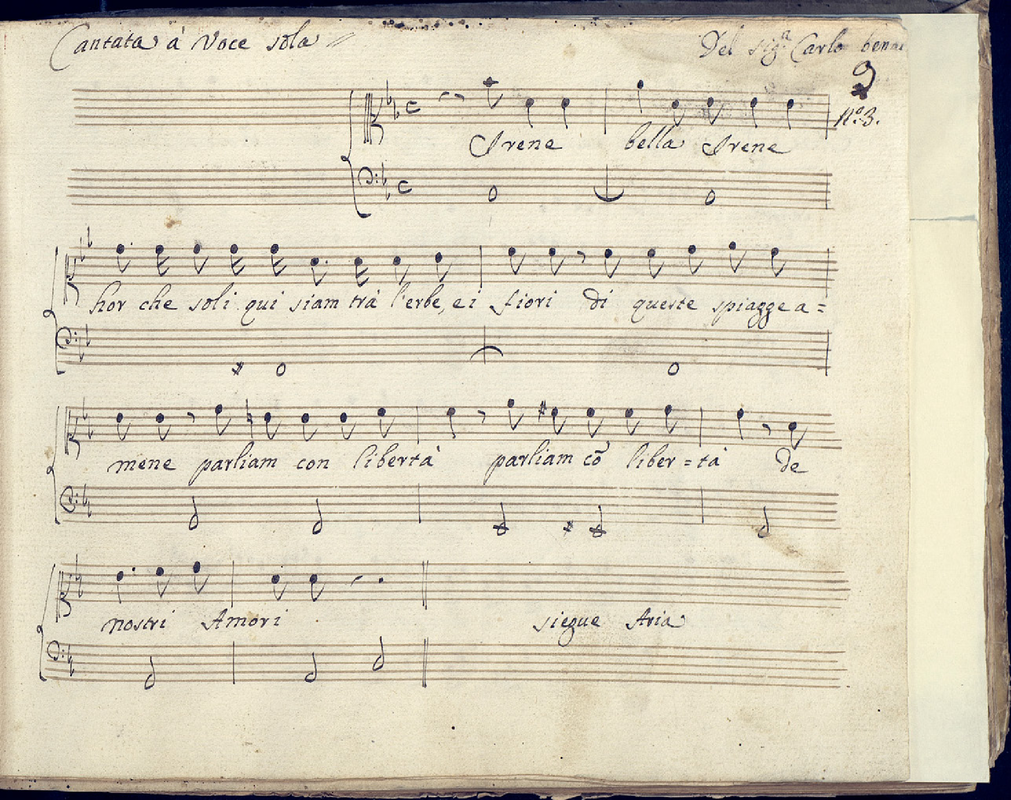 Cantata à Voce sola
Del Sig.ʳᵃ Carlo
9
N.º 3.
Irene bella Irene
hor che soli qui siam trà l'erbe, e i fiori di queste spiagge a=
mene parliam con libertà parliam cō liber=tà de
nostri Amori siegue Aria